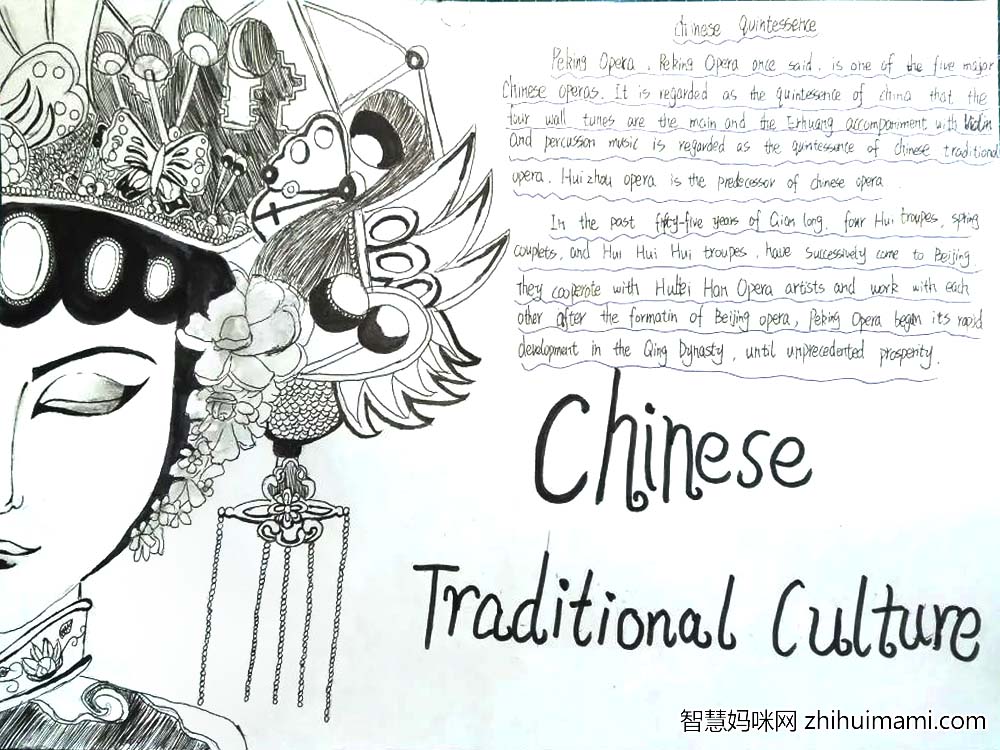 Chinese Quintessence
Peking Opera. Peking Opera once said, is one of the five major
Chinese operas. It is regarded as the quintessence of china that the
four wall tunes are the main and the Erhuang accompaniment with Violin
and percussion music is regarded as the quintessence of Chinese traditional
opera. Huizhou opera is the predecessor of chinese opera.
In the past fifty-five years of Qian long, four Hui troupes, spring
couplets, and Hui Hui Hui troupes, have successively come to Beijing.
they cooperate with Hubei Han Opera artists and work with each
other after the formatin of Beijing opera, Peking Opera began its rapid
development in the Qing Dynasty, until unprecedented prosperity.
Chinese
Traditional Culture
智慧妈咪网 zhihuimami.com